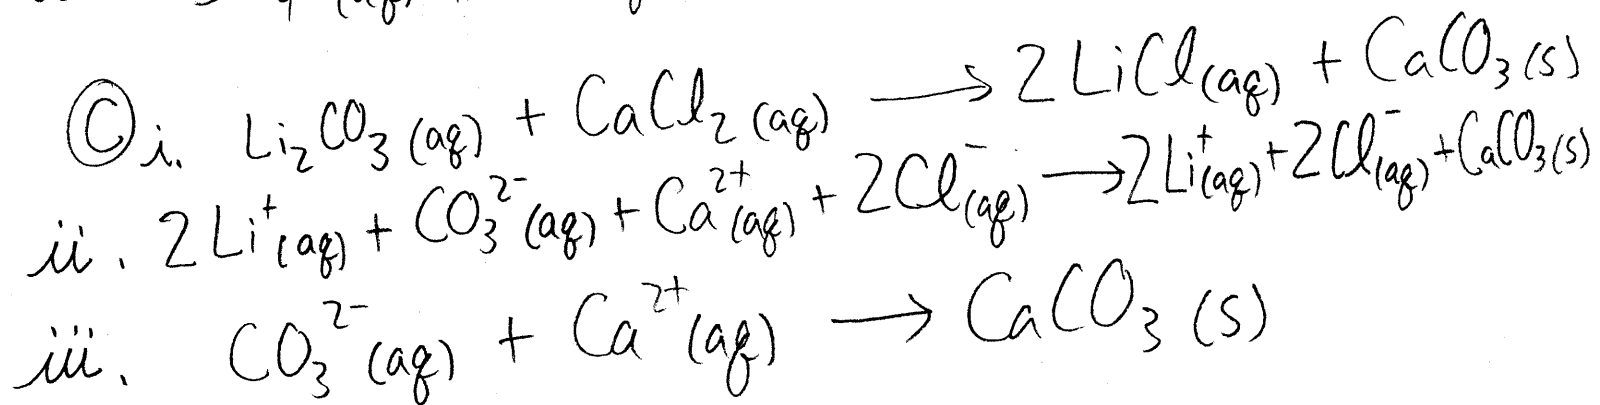 (aq)
Ⓒ i. Li₂CO₃(aq) + CaCl₂(aq) → 2LiCl(aq) + CaCO₃(s)
ii. 2Li⁺(aq) + CO₃²⁻(aq) + Ca²⁺(aq) + 2Cl⁻(aq) → 2Li⁺(aq) + 2Cl⁻(aq) + CaCO₃(s)
iii. CO₃²⁻(aq) + Ca²⁺(aq) → CaCO₃(s)